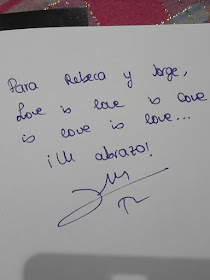 Para Rebeca y Jorge,
Love is love is love
is love is love...
¡Un abrazo!